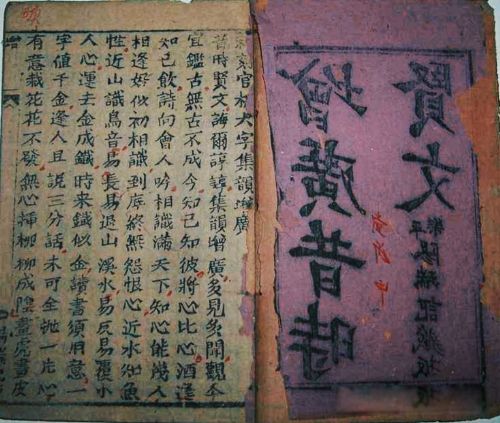 增廣昔時
賢文
陽瑞記藏板
官板大字集韻增廣
昔時賢文誨爾諄諄集韻增廣多見多聞觀今
宜鑑古無古不成今知己知彼將心比心酒逢
知己飲詩向會人吟相識滿天下知心能幾人
相逢好似初相識到底終無怨恨心近水知魚
性近山識鳥音易長易退山溪水易反易覆小
人心運去金成鐵時來鐵似金讀書須用意一
字值千金逢人且說三分話未可全抛一片心
有意栽花花不發無心插柳柳成陰畫虎畫皮